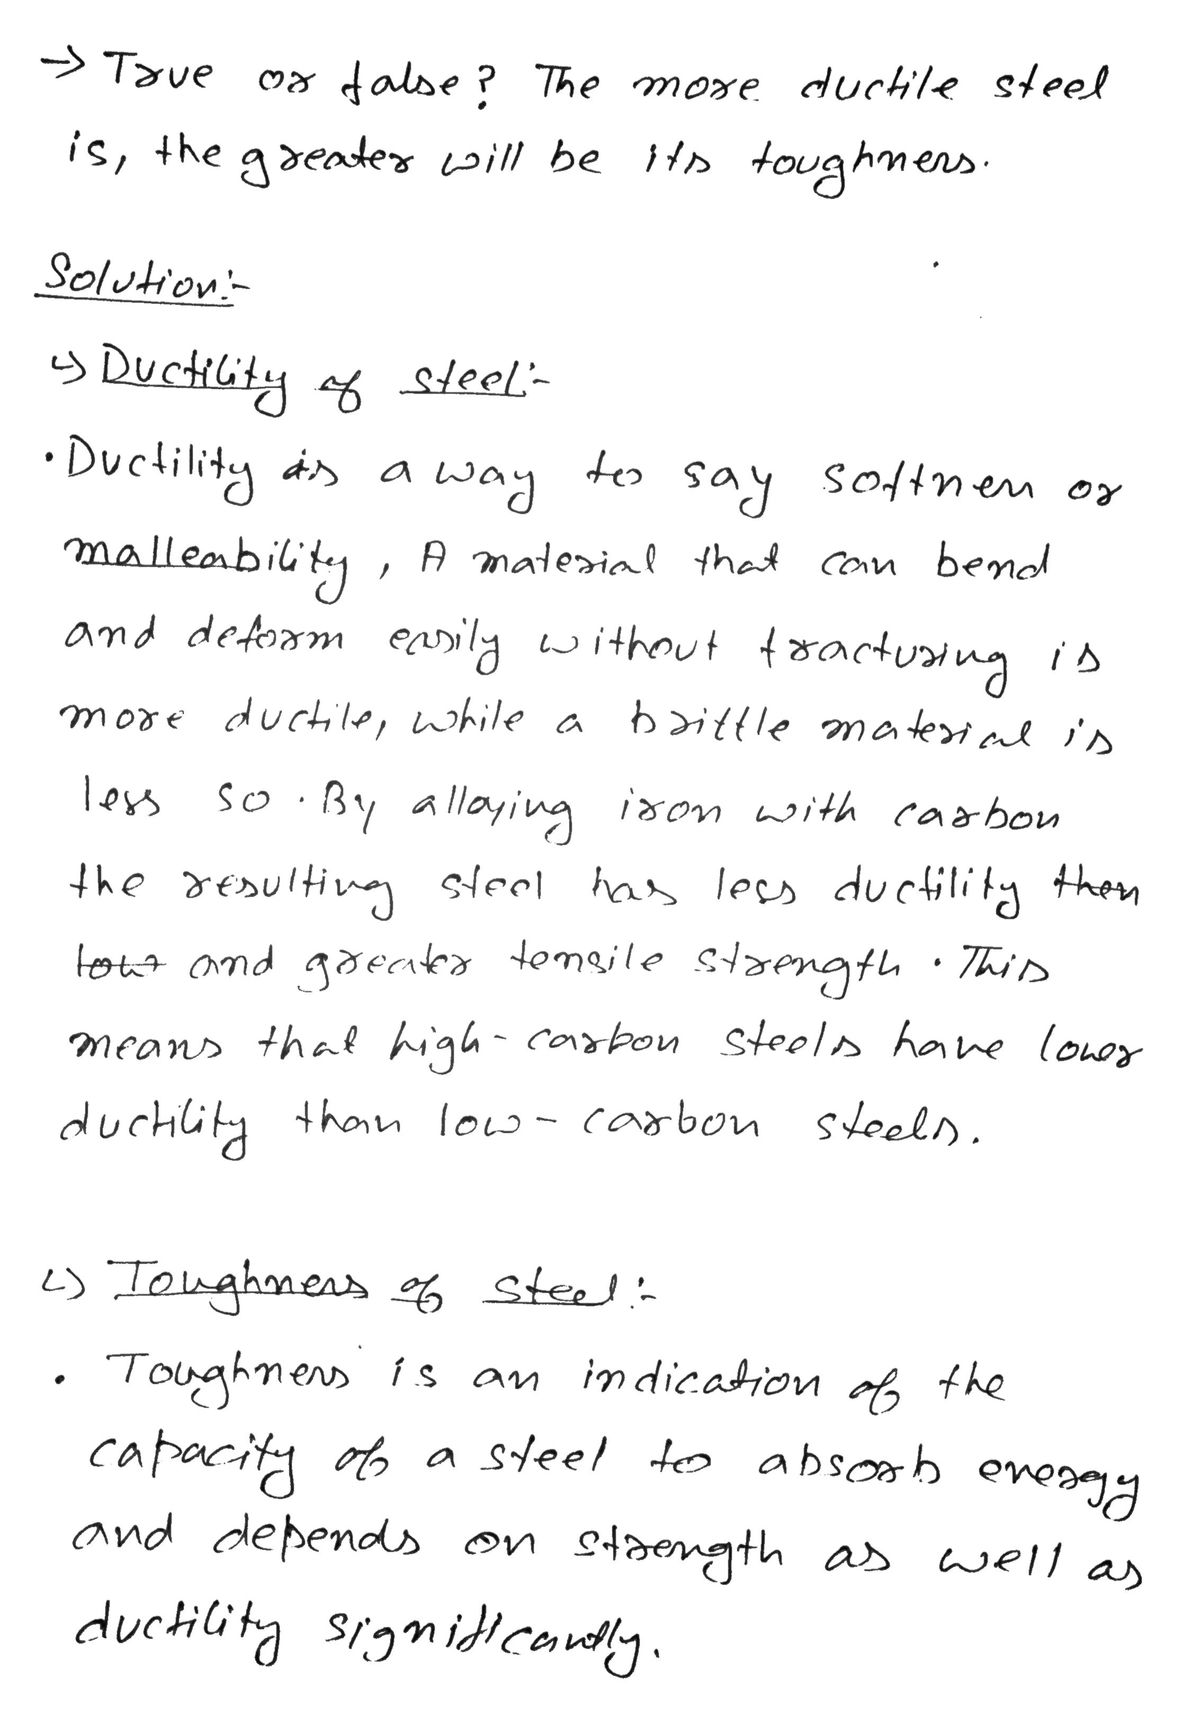 → True or false? The more ductile steel
is, the greater will be its toughness.
Solution:-
↳ Ductility of steel:-
• Ductility is a way to say softness or
malleability, A material that can bend
and deform easily without fracturing is
more ductile, while a brittle material is
less so. By alloying iron with carbon
the resulting steel has less ductility then
low and greater tensile strength. This
means that high-carbon steels have lower
ductility than low-carbon steels.
↳ Toughness of steel:-
• Toughness is an indication of the
capacity of a steel to absorb energy
and depends on strength as well as
ductility significantly.